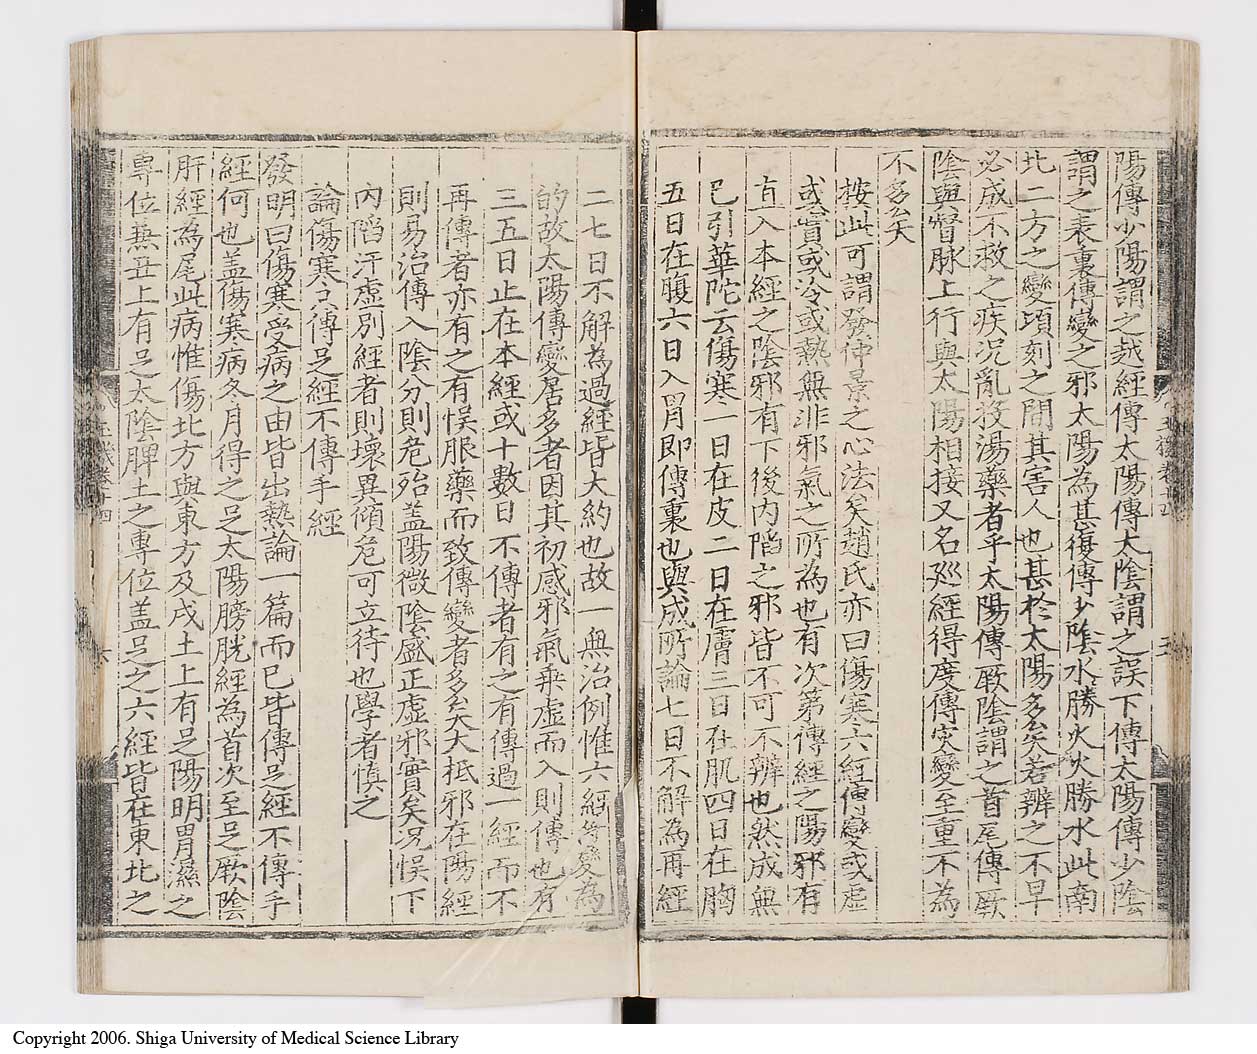 陽傳少陽謂之越經傳太陽傳太陰謂之誤下傳太陽傳少陰
謂之表裏傳變之邪太陽為甚復傳少陰水勝火火勝水此南
北二方之變頃刻之間其害人也甚於太陽多矣若辨之不早
必成不救之疾況亂投湯藥者乎太陽傳厥陰謂之首尾傳厥
陰與督脉上行與太陽相接又名廵經得度傳灾變至重不為
不多矣
按此可謂發仲景之心法矣趙氏亦曰傷寒六經傳變或虛
或實或冷或熱無非邪氣之所為也有次第傳經之陽邪有
直入本經之陰邪有下後内陷之邪皆不可不辨也然成無
巳引華陀云傷寒一日在皮二日在膚三日在肌四日在胸
五日在腹六日入胃即傳裏也與成所論七日不解為再經
二七日不解為過經皆大約也故一無治例惟六經傳變為
的故太陽傳變居多者因其初感邪氣乗虛而入則傳也有
三五日止在本經或十數日不傳者有之有傳過一經而不
再傳者亦有之有悞服藥而致傳變者多矣大抵邪在陽經
則易治傳入陰分則危殆盖陽微陰盛正虛邪實矣況悞下
内陷汗虛別經者則壞異傾危可立待也學者慎之
論傷寒言傳足經不傳手經
發明曰傷寒受病之由皆出熱論一篇而已皆傳足經不傳手
經何也盖傷寒病冬月得之足太陽膀胱經為首次至足厥陰
肝經為尾此病惟傷北方與東方及戌土上有足陽明胃濕之
專位兼丑上有足太陰脾土之專位盖足之六經皆在東北之
玉機卷十四
五
六
Copyright 2006. Shiga University of Medical Science Library